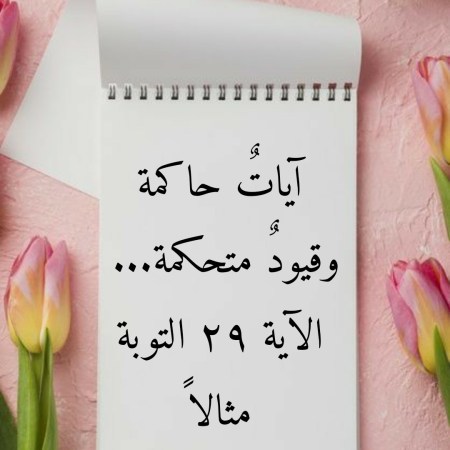 آياتٌ حاكمة
وقيودٌ متحكمة...
الآية ٢٩ التوبة
مثالاً